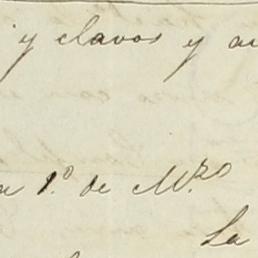 y clavos y
1.º de M.zo
La